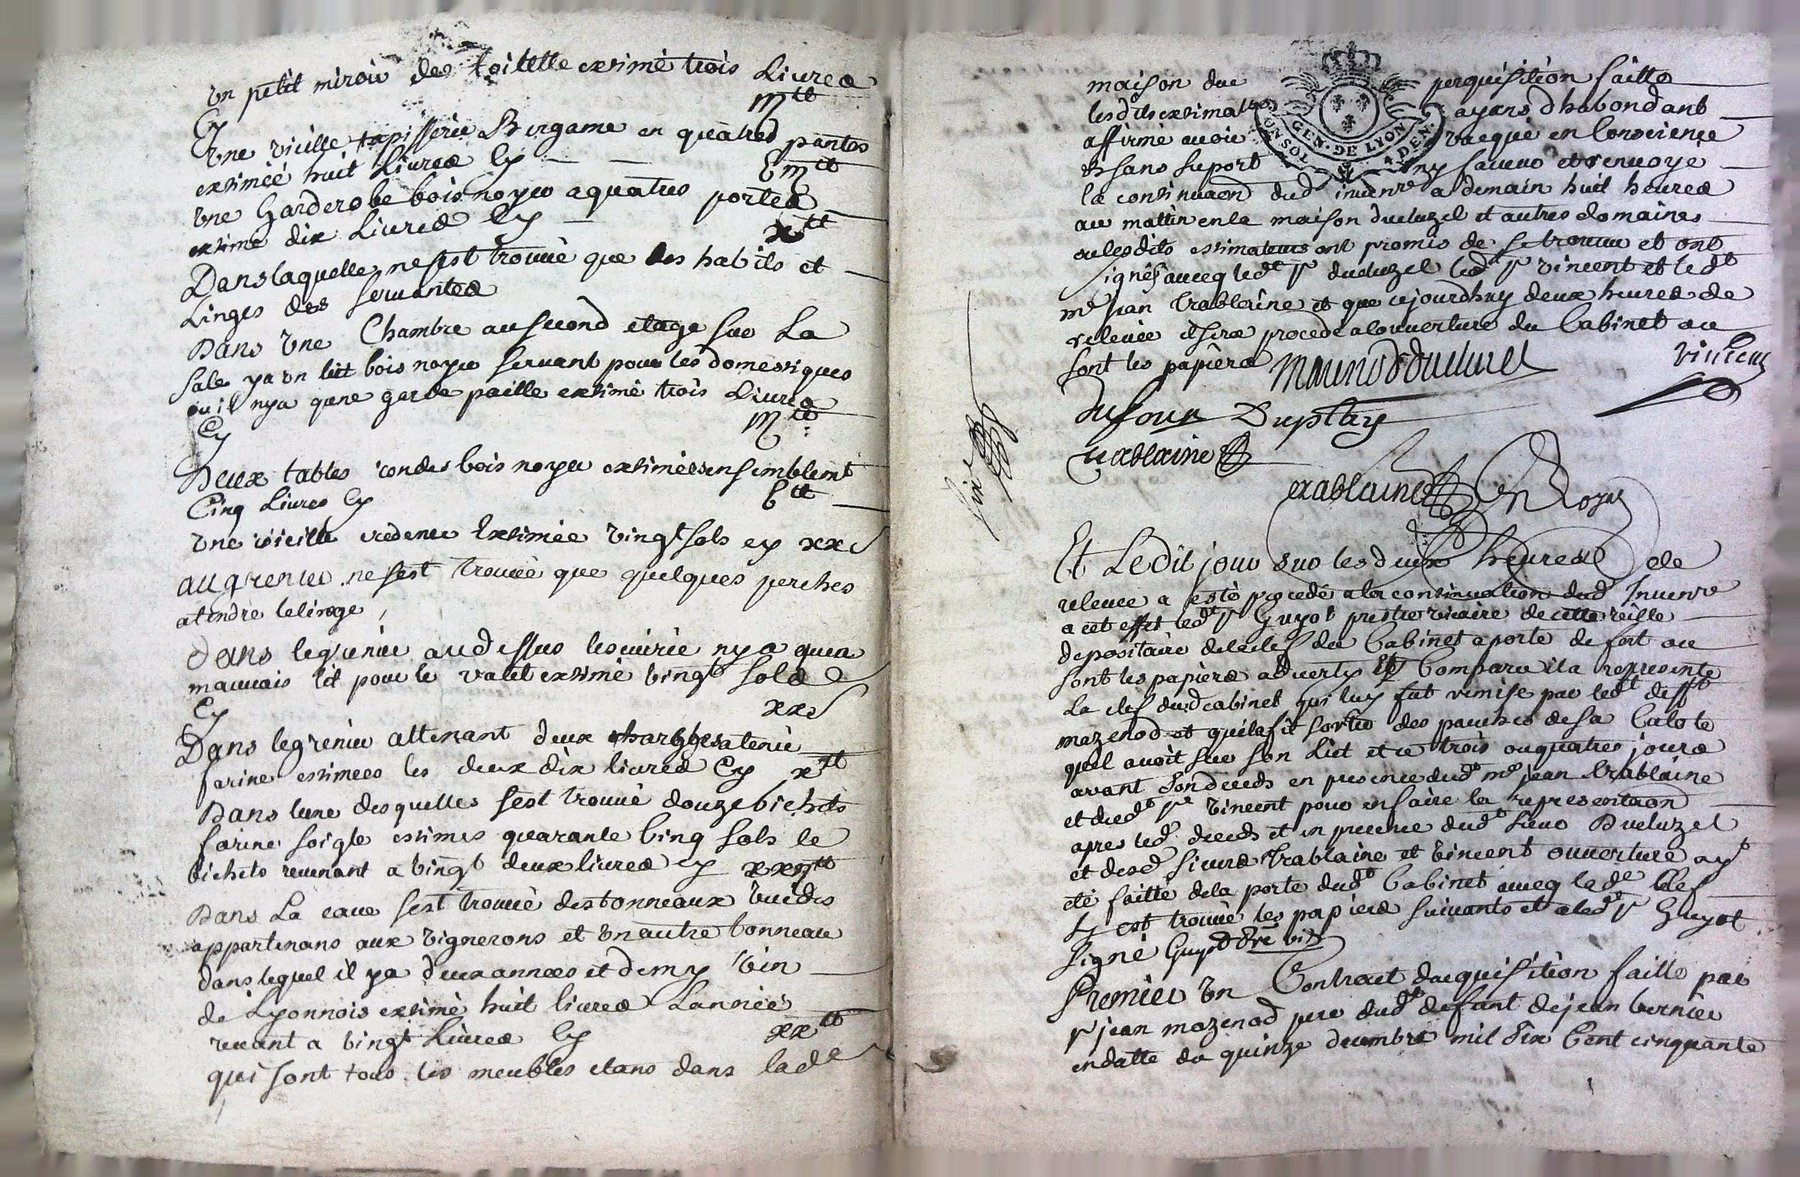 un petit miroir de toilette extimé trois Livres
Cy
iij tt
une vieille tapisserie Bergame en quatres pantes
extimée huit Livres Cy
viij tt
une Garderobe bois noyer a quatres portes
extimé dix Livres Cy
x tt
Dans laquelle ne sest trouvé que des habits et
Linges des servantes
Dans une Chambre au second etage sur La
Sale ya un lict bois noyer servant pour les domestiques
ou il nya qune garde paille extimé trois Livres
Cy
iij tt
Deux tables rondes bois noyer extimées ensemblemt
Cinq Livres Cy
v tt
une vieille credence Extimée vingt sols cy xx s
au grenier ne sest trouvé que quelques perches
a tendre le linge
dans le grenier au dessus lescuirie nya quun
mauvais lit pour le valet extimé vingt sols
Cy
xx s
Dans le grenier attenant deux a tenir
farine estimees les deux dix livres Cy x tt
Dans lune desquelles sest trouvé douze bichets
farine soigle estimés quarante Cinq sols le
bichets revenant a vingt deux livres cy xxij tt
Dans La cave sest trouvé des tonneaux vuides
appartenans aux vignerons et un autre tonneau
dans lequel il ya deux annees et demy vin
de Lyonnois extimé huit livres Lannée
revenant a vingt Livres Cy
xx tt
qui sont tous les meubles etans dans lade
maison due perquisition faitte
lesdits extimat ayans dhabondant
affirmé avoir vacqué en Conscience
et sans suport ny faveur et renvoyé
la continuaon dud invenre a demain huit heures
au mattin en la maison dueluzel et autres domaines
ou lesdits estimateurs ont promis de se trouver et ont
signés avecq ledt sr dueluzel led sr vincent et ledt
me jean trablaine et que cejourdhuy deux heures de
relevée il sera procedé a louverture du Cabinet ou
sont les papiers
Vincent
Dufour Duplay
trablaine
trablaine
GEN. DE LYON
Et Ledit jour sur les deux heures de
relevée a esté procedé a la continuation dud Invenre
a cet effet led sr Guyot prestre vicaire de cette ville
depositaire de la clef du Cabinet a porte de fert ou
sont les papiers adverty et Comparu il a representé
La clef dud cabinet qui luy fut remise par ledt defft
mazenod et quil a fit sortir des poches de sa Culote
quil avoit sur son Lict et ce trois ou quatres jours
avant son deceds en presence dudt me jean trablaine
et dudt sr vincent pour en faire la representaon
apres led deceds et en presence dudt sieur Dueluzel
et desd sieurs trablaine et vincent ouverture ayt
été faitte de la porte dudt Cabinet avecq lade clef
sy est trouvé les papiers suivants et a led sr Guyot
signé Guyot
Premier un Contract dacquisition faitte par
sr jean mazenod pere dudt defunt de jean bernier
en datte du quinze decembre mil six Cent cinquante